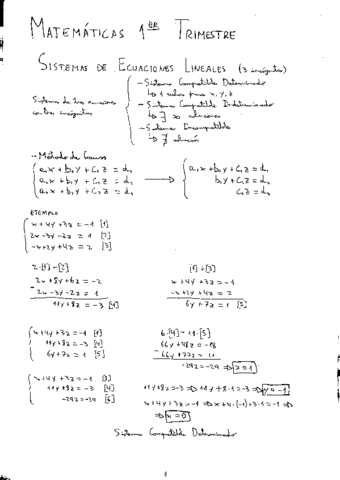 MATEMÁTICAS 1ER TRIMESTRE
SISTEMAS DE ECUACIONES LINEALES (3 incógnitas)
Sistema de tres ecuaciones con tres incógnitas
- Sistema Compatible Determinado
↳ 1 valor para x, y, z
- Sistema Compatible Indeterminado
↳ ∃ ∞ soluciones
- Sistema Incompatible
↳ ∄ solución
- Método de Gauss
a₁x + b₁y + c₁z = d₁
a₁x + b₁y + c₁z = d₁
a₁x + b₁y + c₁z = d₁
→
a₁x + b₁y + c₁z = d₁
b₁y + c₁z = d₁
c₁z = d₁
EJEMPLO
x + 4y + 3z = -1 [1]
2x - 3y - 2z = 1 [2]
-x + 2y + 4z = 2 [3]
2·[1] - [2]
2x + 8y + 6z = -2
- 2x - 3y - 2z = 1
11y + 8z = -3 [4]
[1] + [3]
x + 4y + 3z = -1
-x + 2y + 4z = 2
6y + 7z = 1 [5]
x + 4y + 3z = -1 [1]
11y + 8z = -3 [4]
6y + 7z = 1 [5]
6·[4] - 11·[5]
66y + 48z = -18
- 66y + 77z = 11
-29z = -29 ⇒ z = 1
x + 4y + 3z = -1
11y + 8z = -3 [4]
-29z = -29 [6]
11y + 8z = -3 ⇒ 11y + 8·1 = -3 ⇒ y = -1
x + 4y + 3z = -1 ⇒ x + 4·(-1) + 3·1 = -1 ⇒
⇒ x = 0
Sistema Compatible Determinado
1